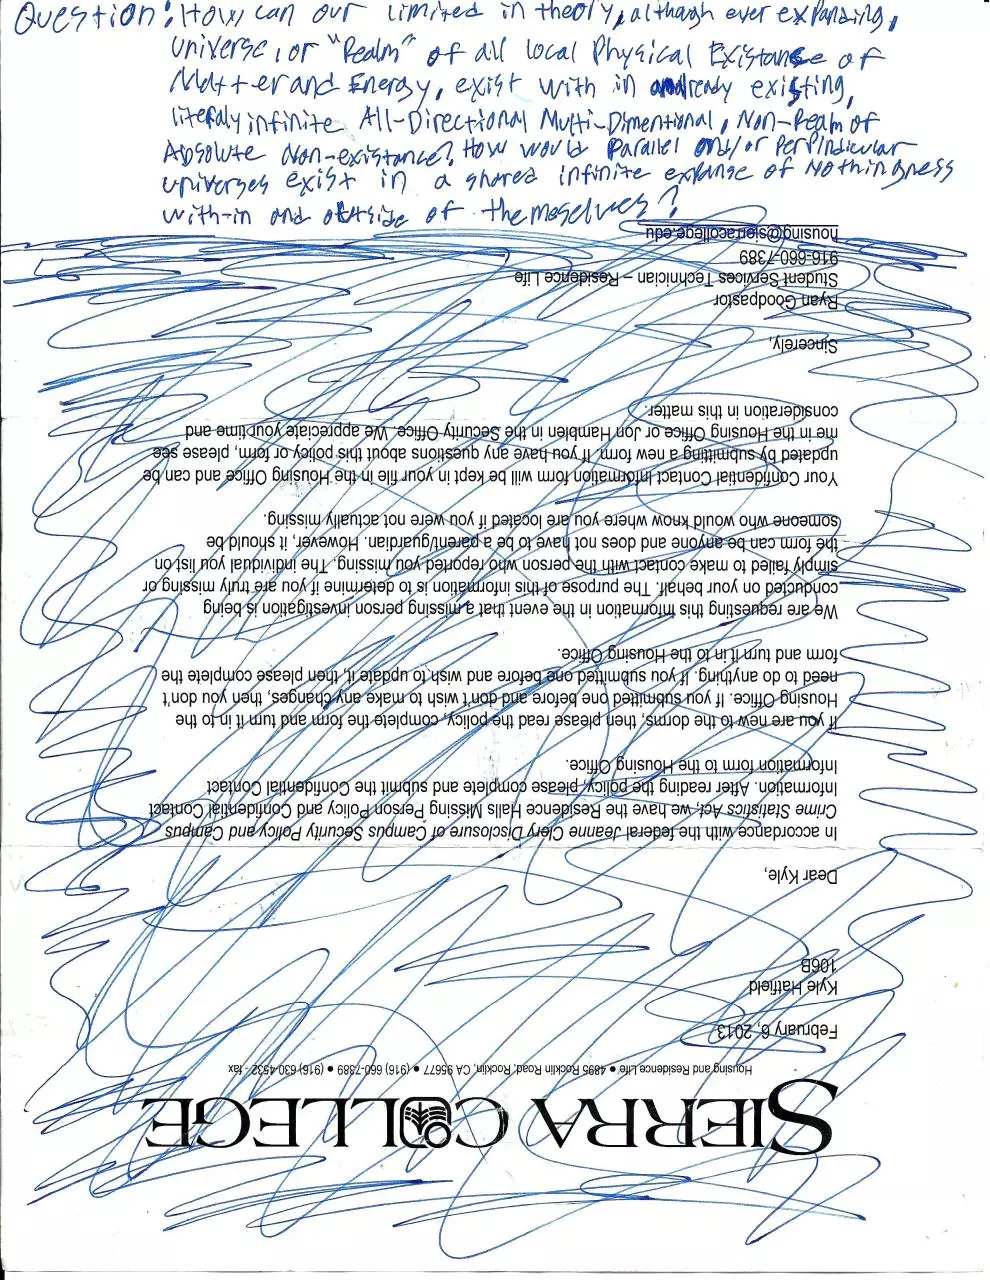 Question: How can our limited in theory, although ever expanding,
universe, or "Realm" of all local Physical Existanse of
Matter and Energy, exist with in an already existing,
literaly infinite All-Directional Multi-Dimentional, Non-Realm of
Absolute Non-existance? How would Parallel and/or Perpindicular
universes exist in a shared infinite expanse of Nothingness
with-in and outside of themeselves?
housing@sierracollege.edu
916-660-7389
Student Services Technician – Residence Life
Ryan Goodpastor
Sincerely,
consideration in this matter.
me in the Housing Office or Jon Hamblen in the Security Office. We appreciate your time and
updated by submitting a new form. If you have any questions about this policy or form, please see
Your Confidential Contact Information form will be kept in your file in the Housing Office and can be
someone who would know where you are located if you were not actually missing.
the form can be anyone and does not have to be a parent/guardian. However, it should be
simply failed to make contact with the person who reported you missing. The individual you list on
conducted on your behalf. The purpose of this information is to determine if you are truly missing or
We are requesting this information in the event that a missing person investigation is being
form and turn it in to the Housing Office.
need to do anything. If you submitted one before and wish to update it, then please complete the
Housing Office. If you submitted one before and don't wish to make any changes, then you don't
If you are new to the dorms, then please read the policy, complete the form and turn it in to the
Information form to the Housing Office.
Information. After reading the policy, please complete and submit the Confidential Contact
Crime Statistics Act, we have the Residence Halls Missing Person Policy and Confidential Contact
In accordance with the federal Jeanne Clery Disclosure of Campus Security Policy and Campus
Dear Kyle,
106B
Kyle Hatfield
February 6, 2013
Housing and Residence Life • 4895 Rocklin Road, Rocklin, CA 95677 • (916) 660-7389 • (916) 630-4532 - fax
SIERRA COLLEGE